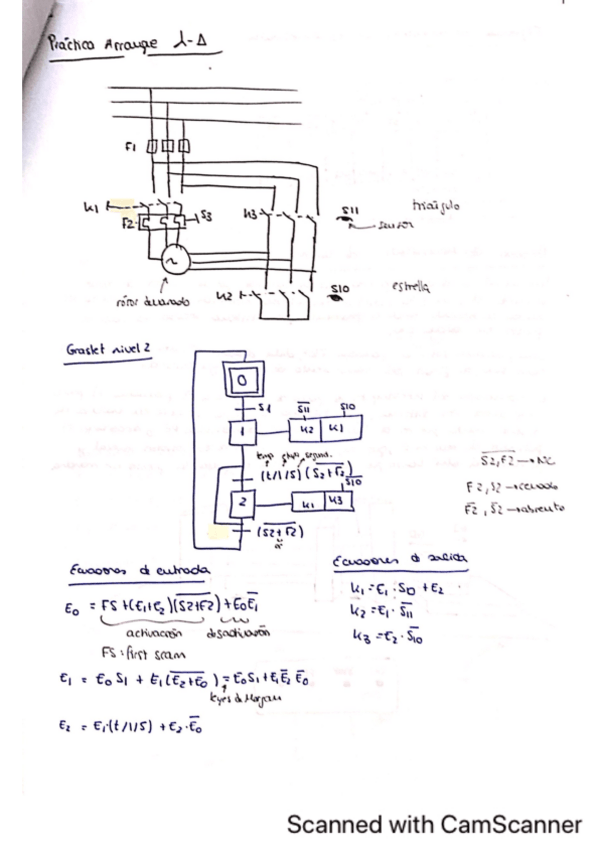 Práctica Arranque λ-Δ
F1
K1
F2
S3
K3
S11
triángulo
sensor
K2
S10
estrella
rotor devanado
Grafcet nivel 2
0
S1
S̅1̅1̅
S10
1
K2
K1
(t/1/5) (S̅2̅+̅F̅2̅)
S̅1̅0̅
2
K1
K3
(S̅2̅+̅F̅2̅)
S̅2̅,̅F̅2̅ → NC
F2, S2 → cerrado
F̅2̅, S̅2̅ → abierto
Ecuaciones de entrada
E0 = FS + (E1+E2)(S̅2̅+̅F̅2̅) + E0E̅1̅
activación
desactivación
FS: first scan
E1 = E0 S1 + E1(E̅2̅+̅E̅0̅) = E0S1 + E1E̅2̅ E̅0̅
Leyes de Morgan
E2 = E1·(t/1/5) + E2·E̅0̅
Ecuaciones de salida
K1 = E1·S10 + E2
K2 = E1·S̅1̅1̅
K3 = E2·S̅1̅0̅
Scanned with CamScanner